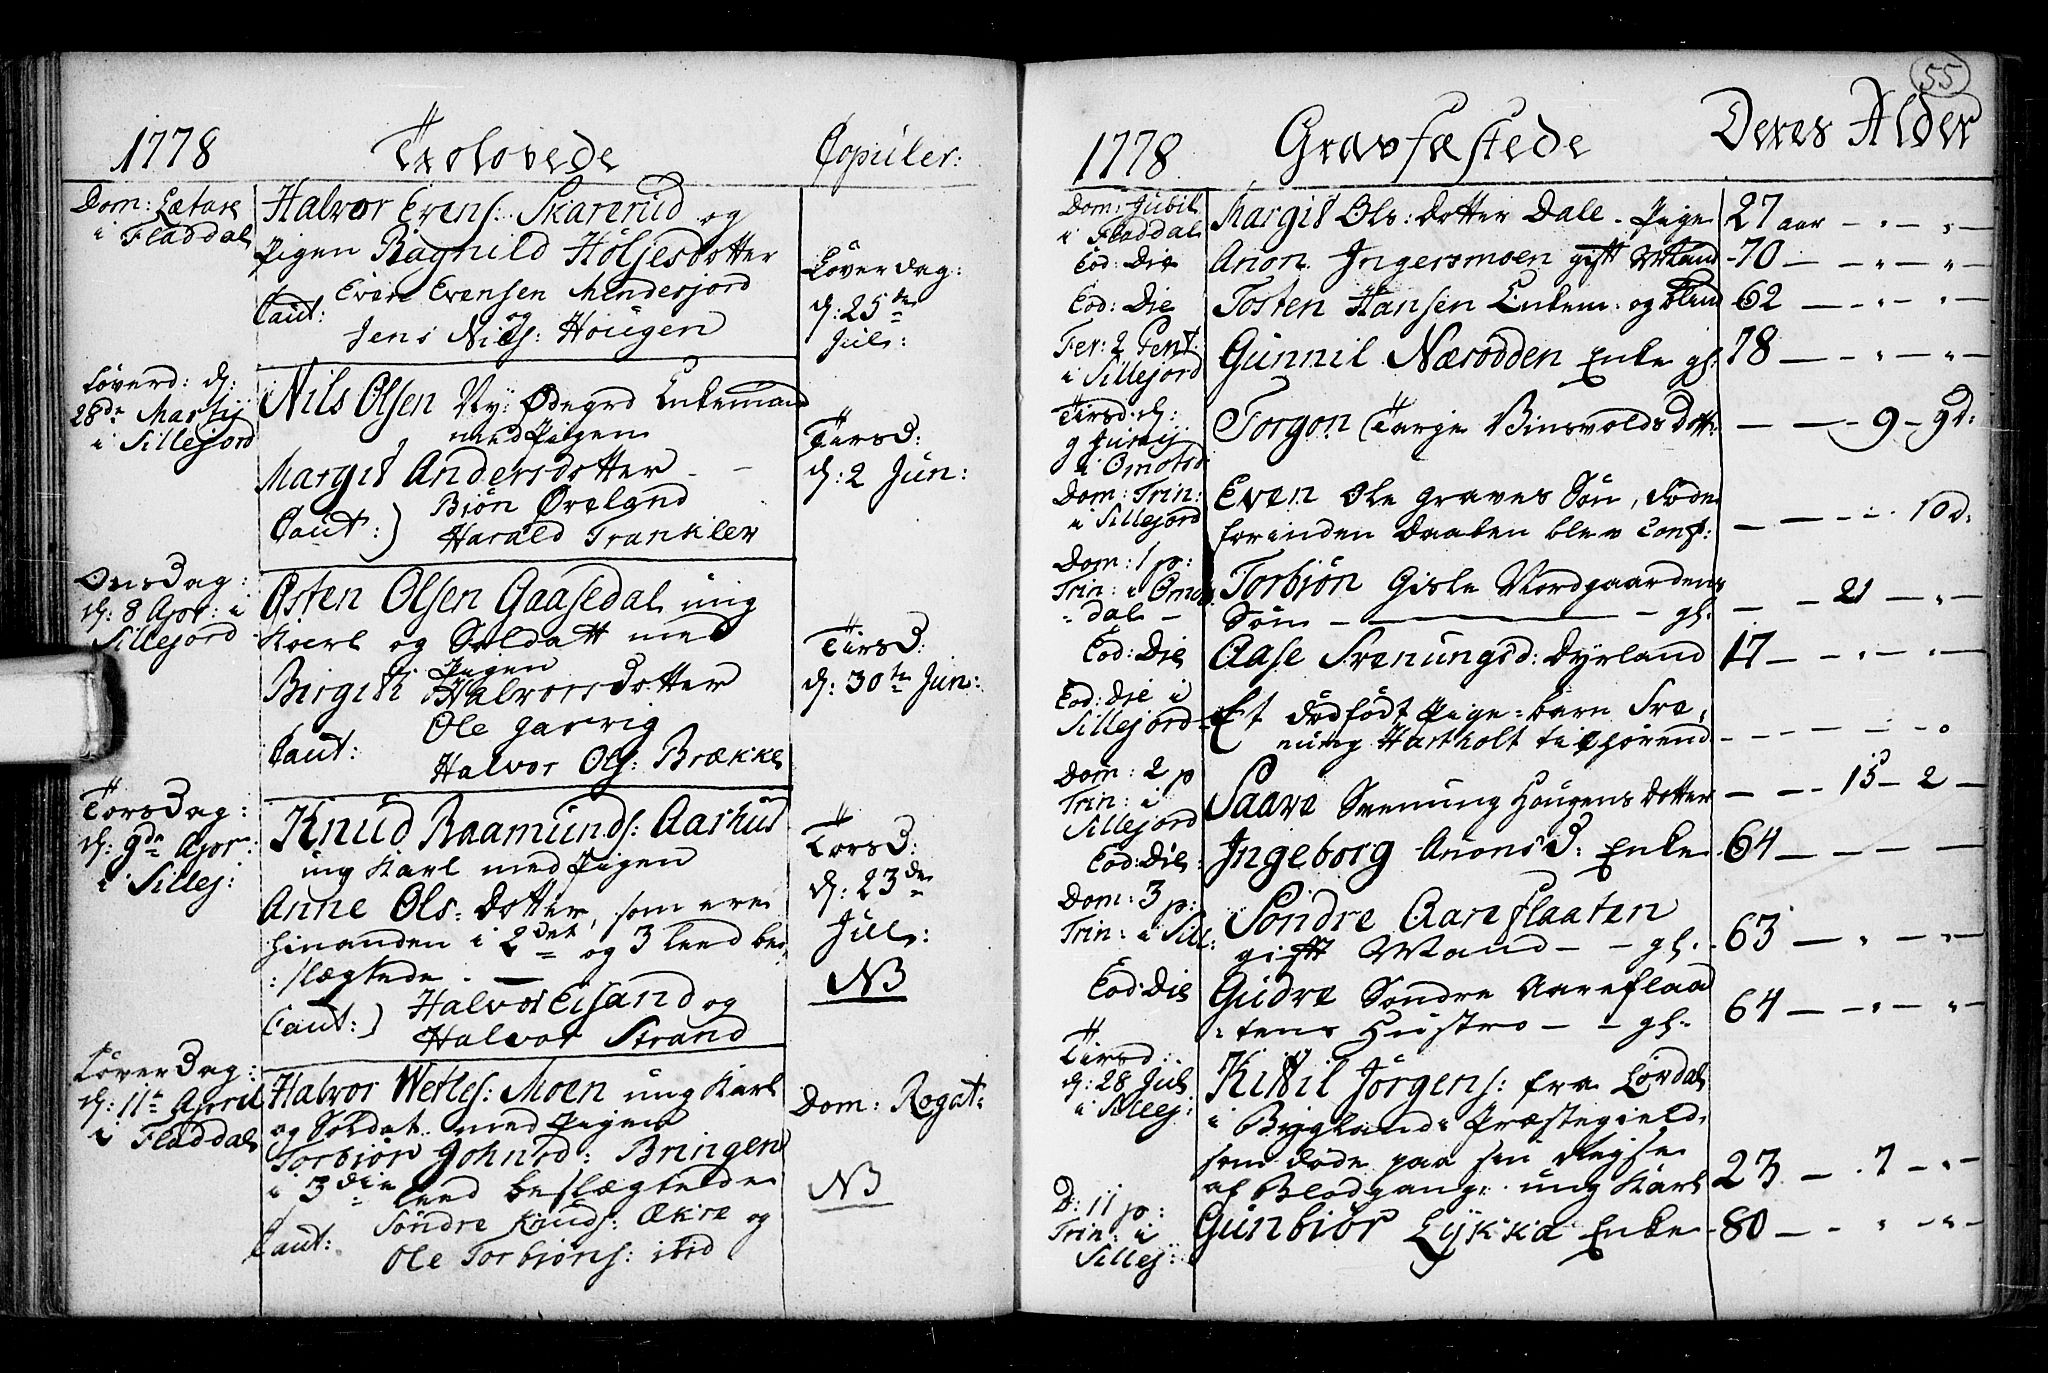 1778 Trolovede Copuler:
Dom: Lætare
i Fladdal
Halvor Evens: Skarerud og
Pigen Ragnild Höljesdotter
Caut: Even Evensen Mendesjord
og
Jens Niels: Hougen
Löverdag:
d: 25de
Jul:
Löverd: d:
28de Martij
i Sillejord
Nils Olsen Ny: Ödegrd Enkemand
med Pigen
Margit Andersdotter
Caut:) Biön Öreland
Harald Trankler
Tirsd:
d: 2 Jun:
Onsdag:
d: 8 Apr: i
Sillejord
Östen Olsen Gaasedal ung
Karl og Soldatt med
Pigen
Birgith Halvorsdotter
Caut: Ole Garvig
Halvor Ols: Brække
Tirsd:
d: 30te Jun:
Torsdag:
d: 9de Apr:
i Sillej:
Knud Raamunds: Aarhus
ung Karl med Pigen
Anne Ols: dotter, som ere
hinanden i 2det og 3 leed be:
:slægtede
Caut:) Halvor Eisand og
Halvor Strand
Torsd:
d: 23de
Jul:
NB
Löverdag:
d: 11te April
i Fladdal
Halvor Wetles: Moen ung Karl
og Soldat med Pigen
Torbiör Johnsd: Bringen
i 3die leed beslægtede
Caut: Söndre Knuds: Ækre og
Ole Torbiörns: ibid
Dom: Rogat:
NB
55
1778 Gravfæstede Deres Alder
Dom: Jubil
i Fladdal
Margit Ols: dotter Dale - Pige 27 aar
Eod: Die Anon Ingersmoen gift Mand 70
Eod: Die Tosten Hansen Enkem: og blind 62
Fer: 2 Pent:
i Sillejord
Gunnil Næsodden Enke gl: 78
Tirsd: d:
9 Junij
i Omotsd
Torgon Tarje Vinsvolds dott: 9 - 9 d:
Dom: Trin:
i Sillejord
Even Ole Graves Sön, döde
forinden Daaben blev Conf: 10 d:
Dom: 1 p:
Trin: i Omots
dal
Torbiön Gisle Nordgaardens
Sön gl: 21
Eod: Die Aase Svenungsd: Dyrland 17
Eod: Die i
Sillejord
Et dödfödt Pige-barn Sve,
nung Hartholt tilhörend
Dom: 2 p
Trin: i
Sillejord
Saave Svenung Hougens dotter 15 - 2
Eod: Die: Ingeborg Anonsd: Enke 64
Dom: 3 p:
Trin: i Sill:
Söndre Aareflaaten
gift Mand gl. 63
Eod: Die Gudre Söndre Aareflaa
:tens Hustro gl. 64
Tirsd:
d: 28 Jul
i Sillej:
Kittil Jörgens: fra Lördal
i Bygland: Præstegield
som döde paa sin Reyse
af Blodgang: ung Karl 23 - 7
D: 11 p:
Trin: i
Sillej:
Gunbiör Lykka Enke 80